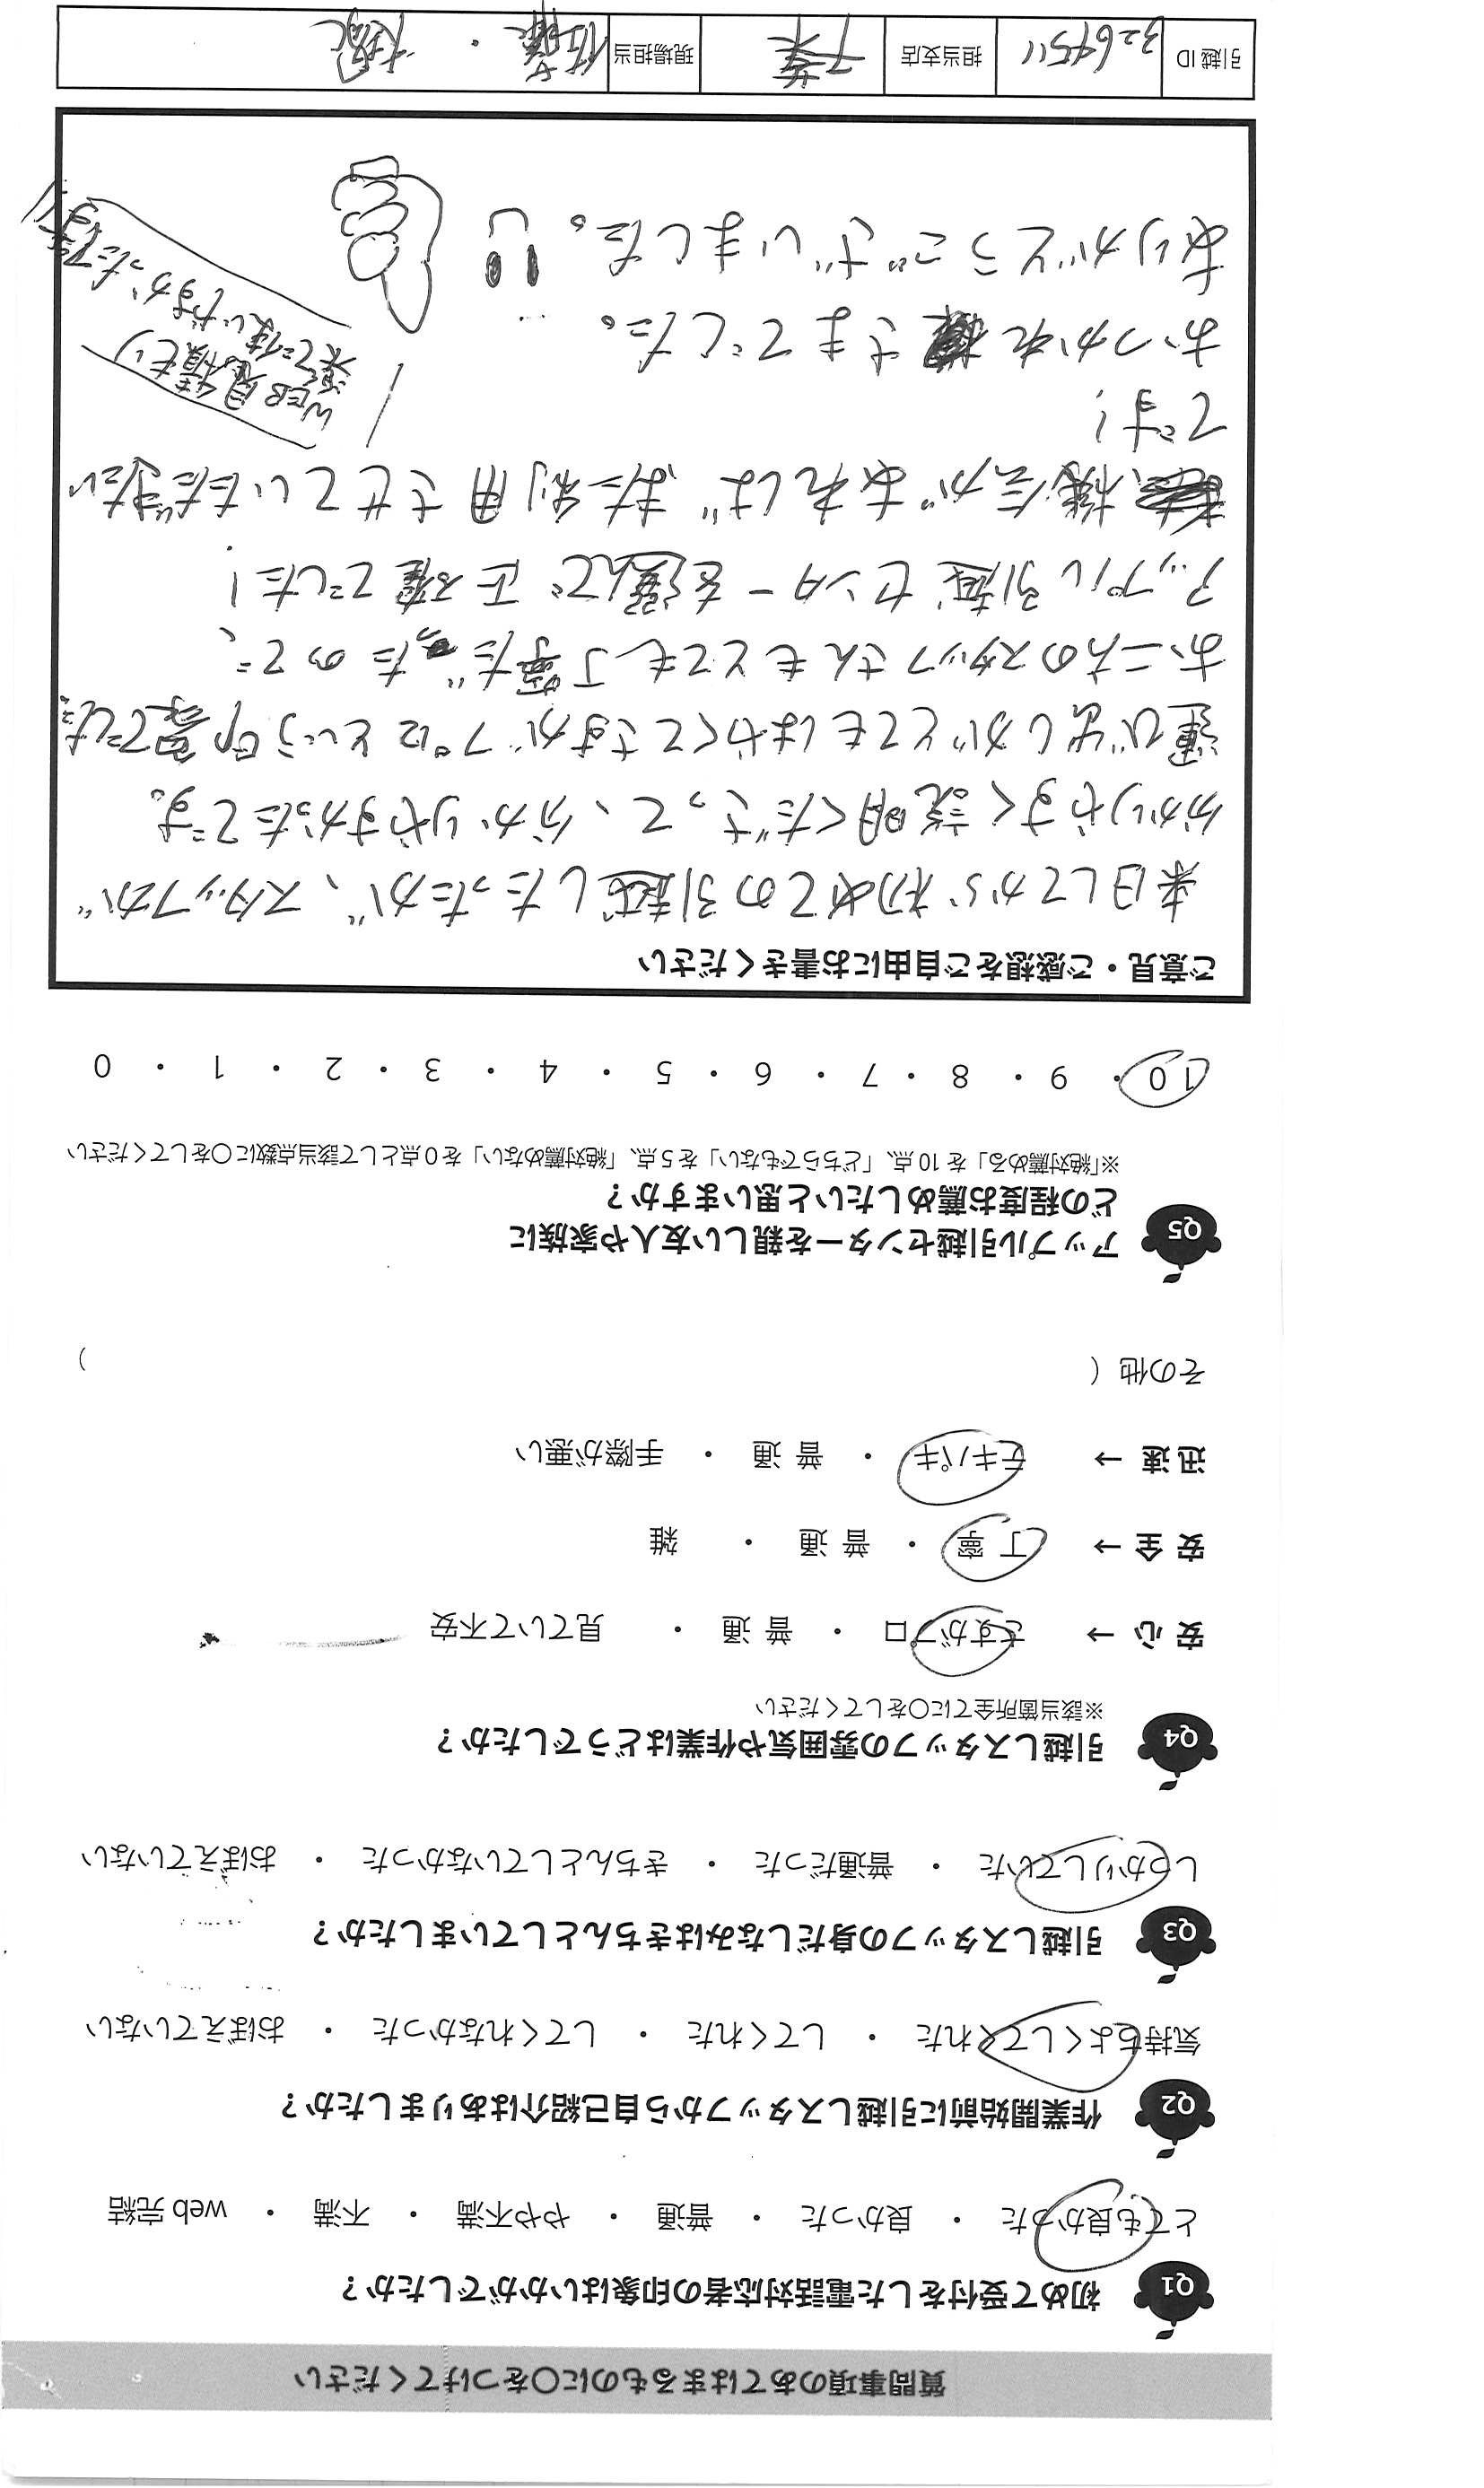 質問事項のあてはまるものに〇をつけてください
Q1 初めて受付をした電話対応者の印象はいかがでしたか?
とても良かった ・ 良かった ・ 普通 ・ やや不満 ・ 不満 ・ web 完結
Q2 作業開始前に引越しスタッフから自己紹介はありましたか?
気持ちよくしてくれた ・ してくれた ・ してくれなかった ・ おぼえていない
Q3 引越しスタッフの身だしなみはきちんとしていましたか?
しっかりしていた ・ 普通だった ・ きちんとしていなかった ・ おぼえていない
Q4 引越しスタッフの雰囲気や作業はどうでしたか?
※該当箇所全てに〇をしてください
安 心 → さすがプロ ・ 普 通 ・ 見ていて不安
安 全 → 丁 寧 ・ 普 通 ・ 雑
迅 速 → テキパキ ・ 普 通 ・ 手際が悪い
その他 ( )
Q5 アップル引越センターを親しい友人や家族に
どの程度お薦めしたいと思いますか?
※「絶対薦める」を 10 点、「どちらでもない」を 5 点、「絶対薦めない」を 0 点として該当点数に〇をしてください
10 ・ 9 ・ 8 ・ 7 ・ 6 ・ 5 ・ 4 ・ 3 ・ 2 ・ 1 ・ 0
ご意見・ご感想をご自由にお書きください
来日してから初めての引越しだったが、スタッフが
分かりやすく説明くださって、分かりやすかったです。
運び出しがとてもはやくてさすがプロという印象でした。
お二人のスタッフさんもとても丁寧だったので、
アップル引越センターを選んで正確でした!
機会があれば、また利用させていただきたい
です!
おつかれさまでした。
ありがとうございました。!!
WEB見積もり
凄くつかいやすかったです!!
引越 ID 3264511 担当支店 千葉 現場担当 佐藤 ・